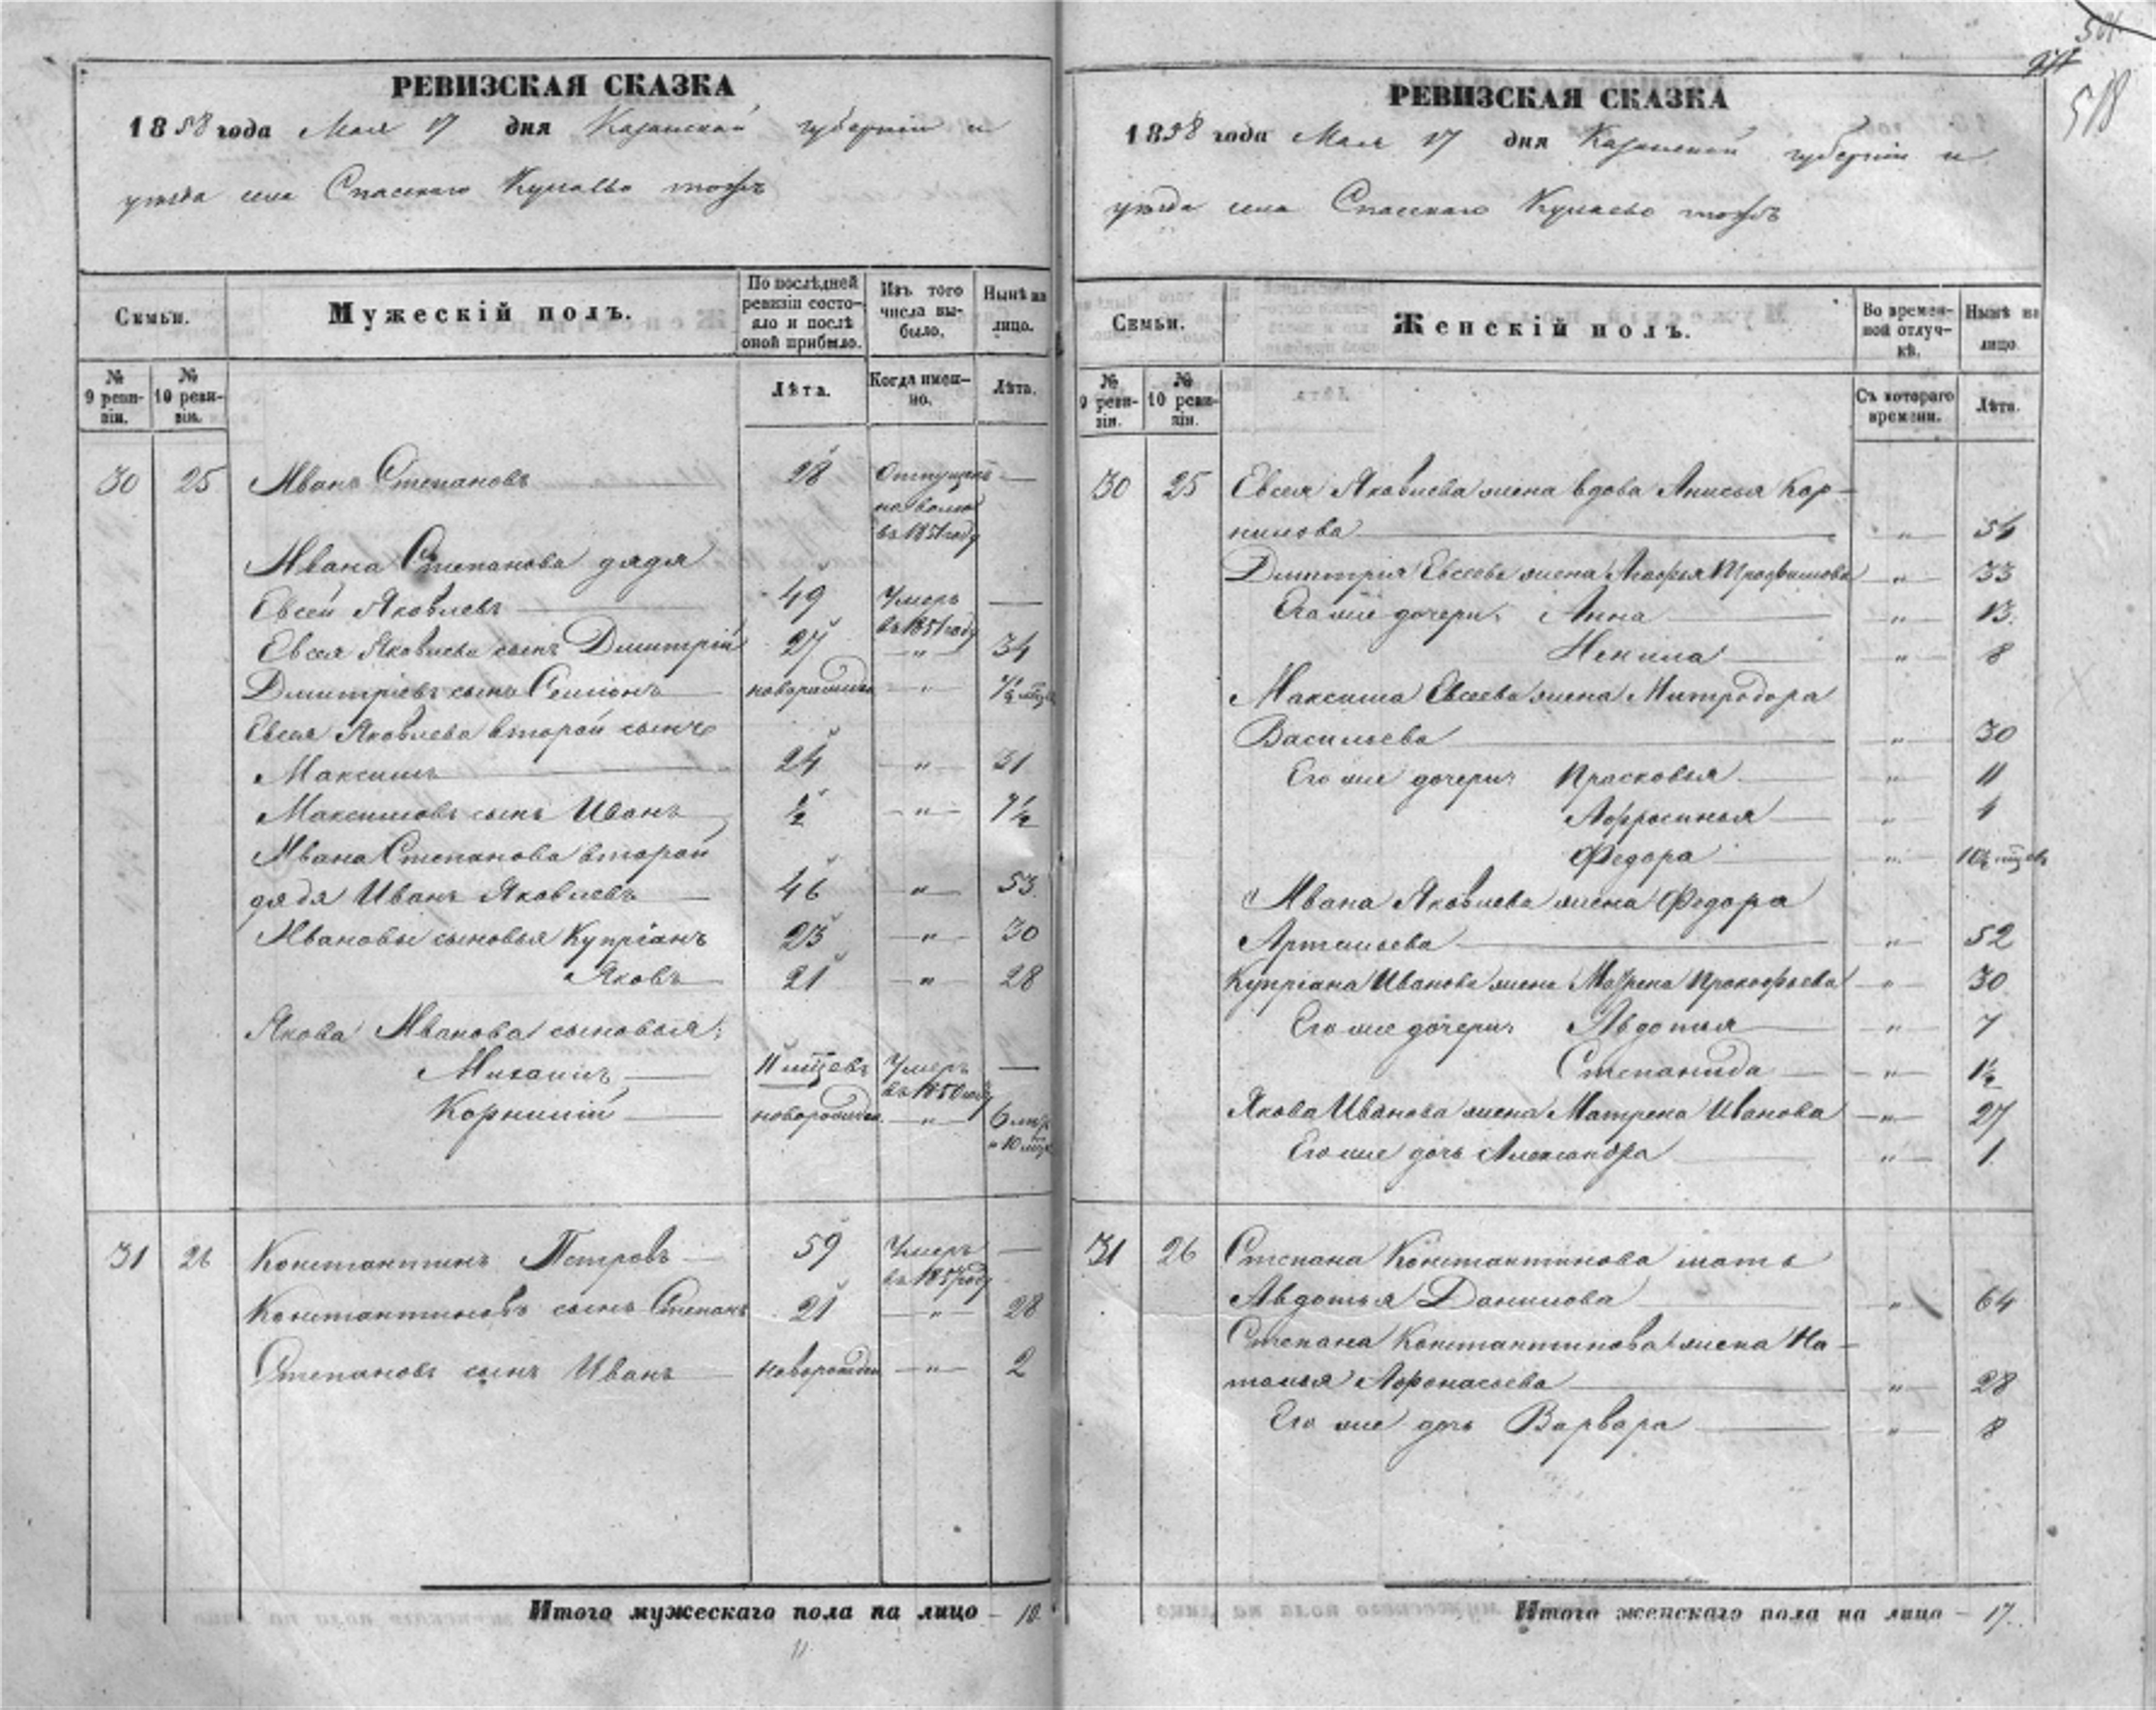 РЕВИЗСКАЯ СКАЗКА
1858 года Мая 17 дня Казанской губерніи и
уѣзда села Спаскаго Кумаево тожъ
Семьи.
Мужескій полъ.
По послѣдней
ревизіи состо-
яло и послѣ
оной прибыло.
Изъ того
числа вы-
было.
Нынѣ на
лицо.
№
9 реви-
зіи.
№
10 реви-
зіи.
Лѣта.
Когда имен-
но.
Лѣта.
30 25 Иванъ Степановъ 28 Отпущенъ —
на волю
въ 1851 году
Ивана Степанова дядя
Евсей Яковлевъ 49 Умеръ —
въ 1851 году
Евсея Яковлева сынъ Дмитрій 27 — „ — 34
Дмитріевъ сынъ Семіонъ новорожден — „ —
Евсея Яковлева второй сынъ
Максимъ 24 — „ — 31
Максимовъ сынъ Иванъ ½ — „ — 7½
Ивана Степанова второй
дядя Иванъ Яковлевъ 46 — „ — 53
Ивановы сыновья Купріанъ 23 — „ — 30
Яковъ 21 — „ — 28
Якова Иванова сыновья:
Михаилъ 11 мѣсяцевъ Умеръ —
въ 1850 году
Корнилій новорожден. — „ — 6 лѣтъ
и 10 мѣс
31 26 Константинъ Петровъ 59 Умеръ —
Константиновъ сынъ Степанъ 21 — „ — 28
Степановъ сынъ Иванъ новорожден — „ — 2
Итого мужескаго пола на лицо — 10.
11
518
РЕВИЗСКАЯ СКАЗКА
1858 года Мая 17 дня Казанской губерніи и
уѣзда села Спаскаго Кумаево тожъ
Семьи.
Женскій полъ.
Во времен-
ной отлуч-
кѣ.
Нынѣ на
лицо
№
9 реви-
зіи.
№
10 реви-
зіи.
Съ котораго
времени.
Лѣта.
30 25 Евсея Яковлева жена вдова Анисья Кор-
нилова — „ — 54
Дмитрія Евсеева жена Агафья Трофимова — „ — 33
Его же дочери: Анна — „ — 13.
Ненила — „ — 8
Максима Евсеева жена Митродора
Васильева — „ — 30
Его же дочери: Прасковья — „ — 11
Афросинья „ 4
Федора — „ —
Ивана Яковлева жена Федора
Артамьева — „ — 52
Купріана Иванова жена Мавра Прокофьева — „ — 30
Его же дочери: Авдотья — „ — 7
Степанида — „ — 1½
Якова Иванова жена Матрена Иванова — „ — 27
Его же дочь Александра — „ — 1
31 26 Степана Константинова мать
Авдотья Данилова „ 64
Степана Константинова жена На-
талья Афонасьева „ 28
Его же дочь Варвара — „ — 8
Итого женскаго пола на лицо — 17.